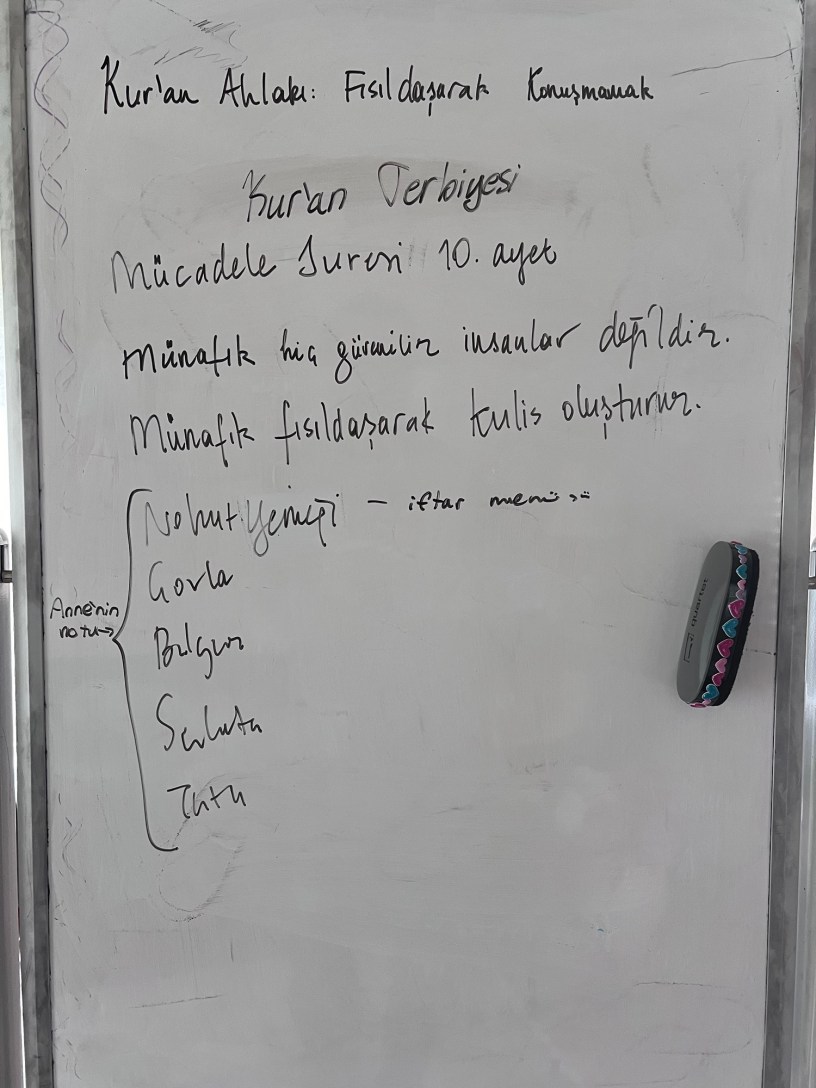 Kur'an Ahlakı: Fısıldaşarak Konuşmamak
Kur'an Terbiyesi
Mücadele Suresi 10. ayet
Münafık hiç güvenilir insanlar değildir.
Münafık fısıldaşarak kulis oluşturur.
Nohut Yemeği - iftar menüsü
Çorba
Bulgur
Salata
Tatlı
Annenin
notu→
quartet